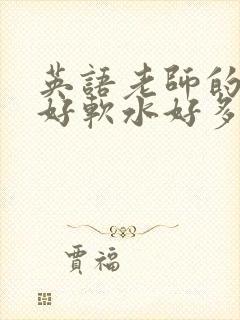 英語老師的
好軟水好多
賈福